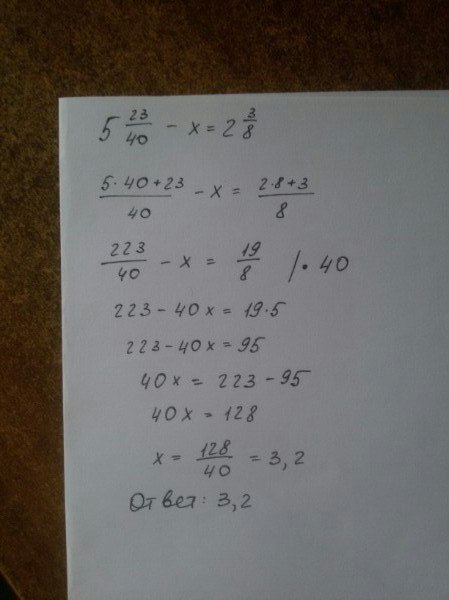 5 23/40 - x = 2 3/8
5·40+23/40 - x = 2·8+3/8
223/40 - x = 19/8 /· 40
223 - 40x = 19·5
223 - 40x = 95
40x = 223 - 95
40x = 128
x = 128/40 = 3,2
Ответ: 3,2